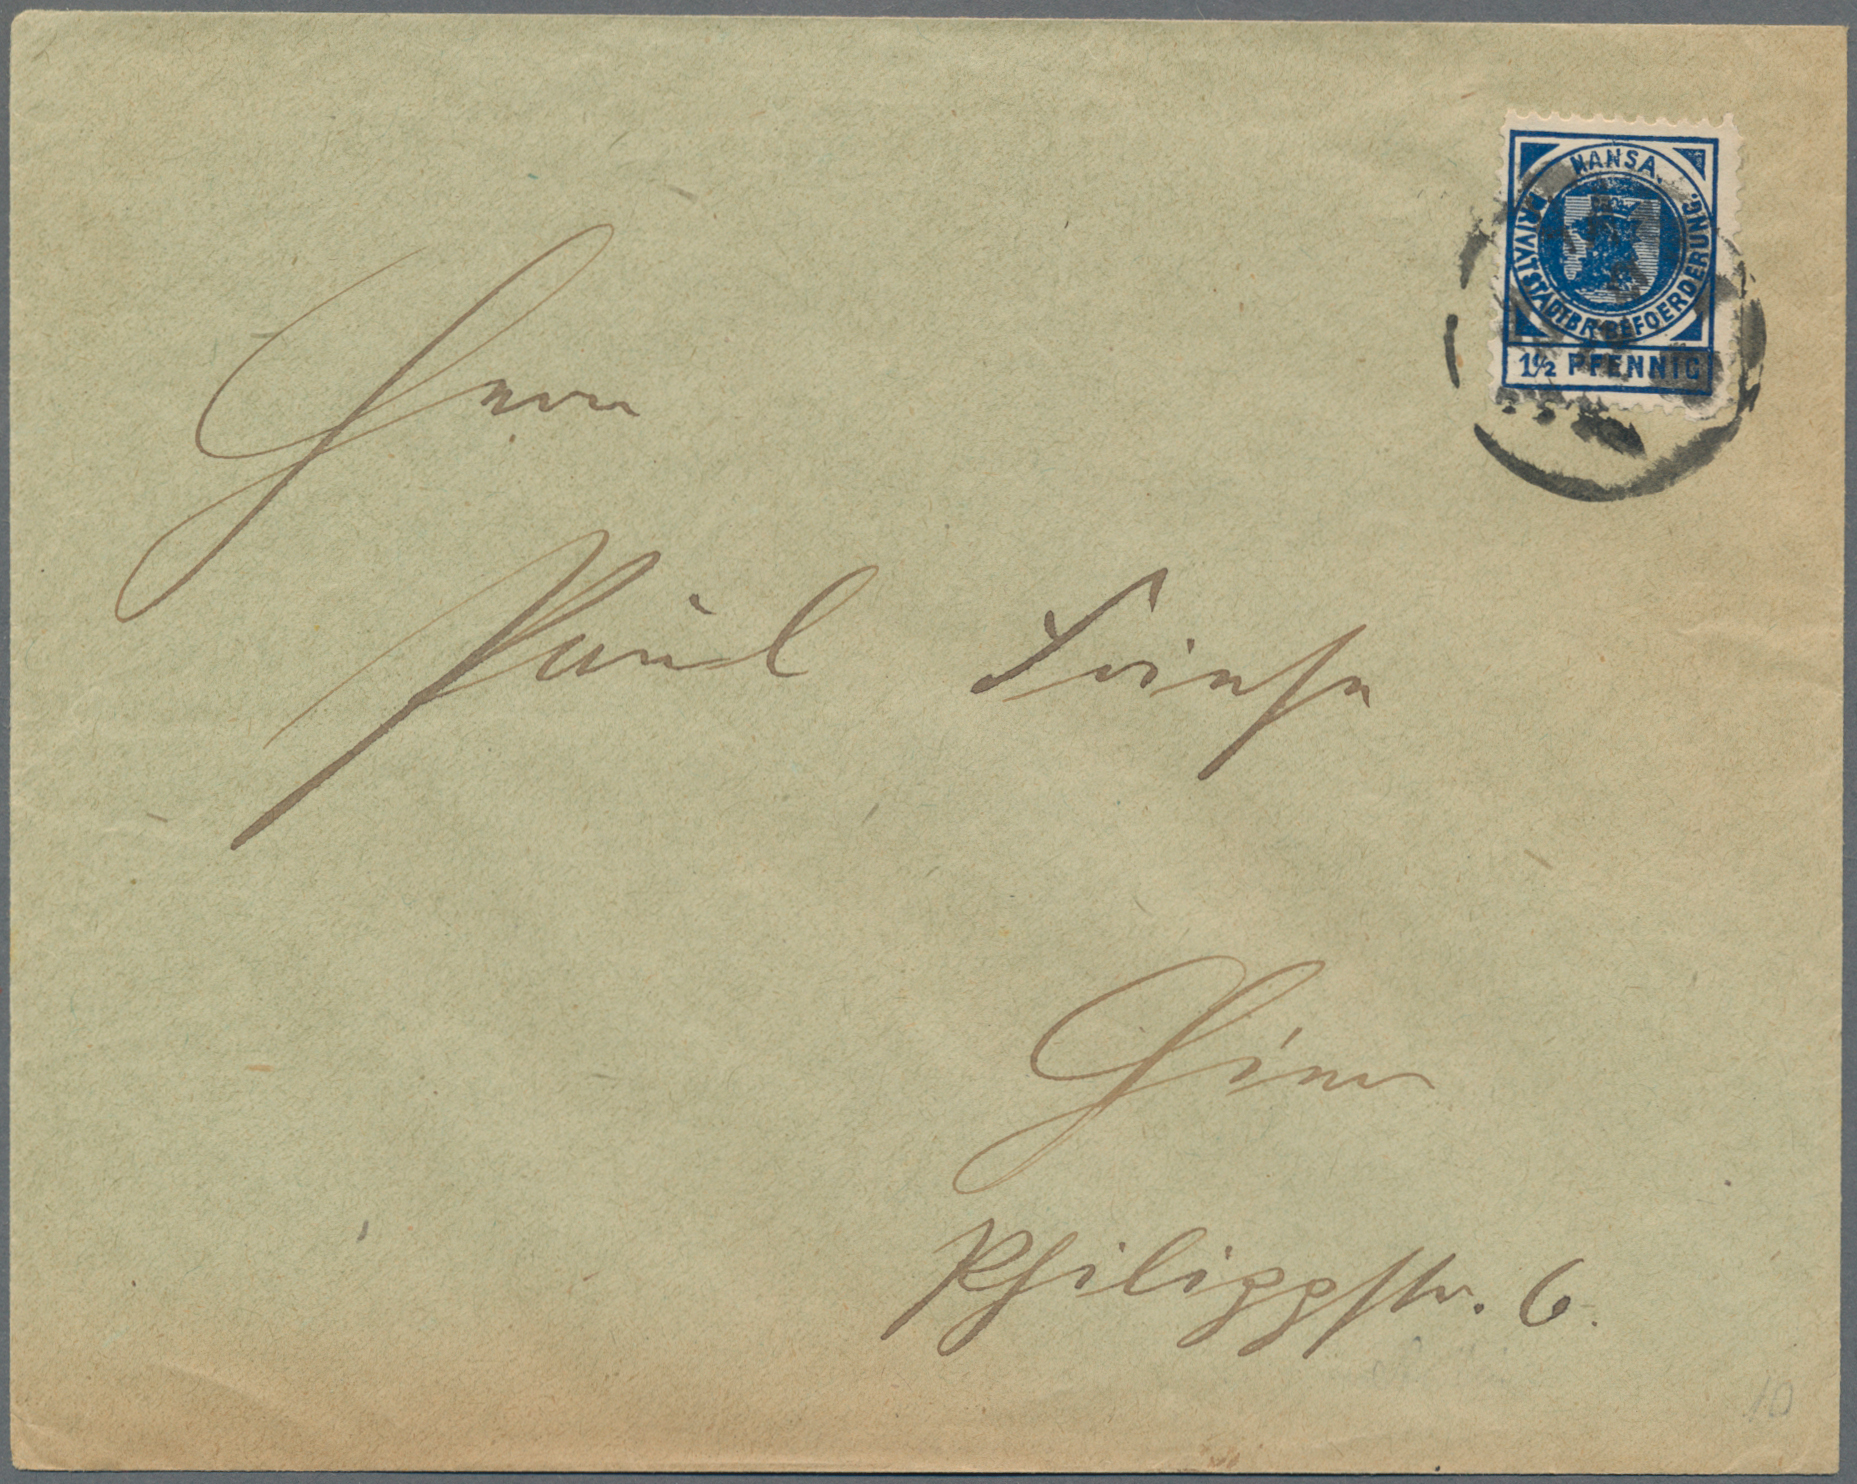 HANSA.
PRIVATSTADTBRIEFBEFOERDERUNG.
1½ PFENNIG
Herrn
Paul Friese
Hier
Philippstr. 6.
10